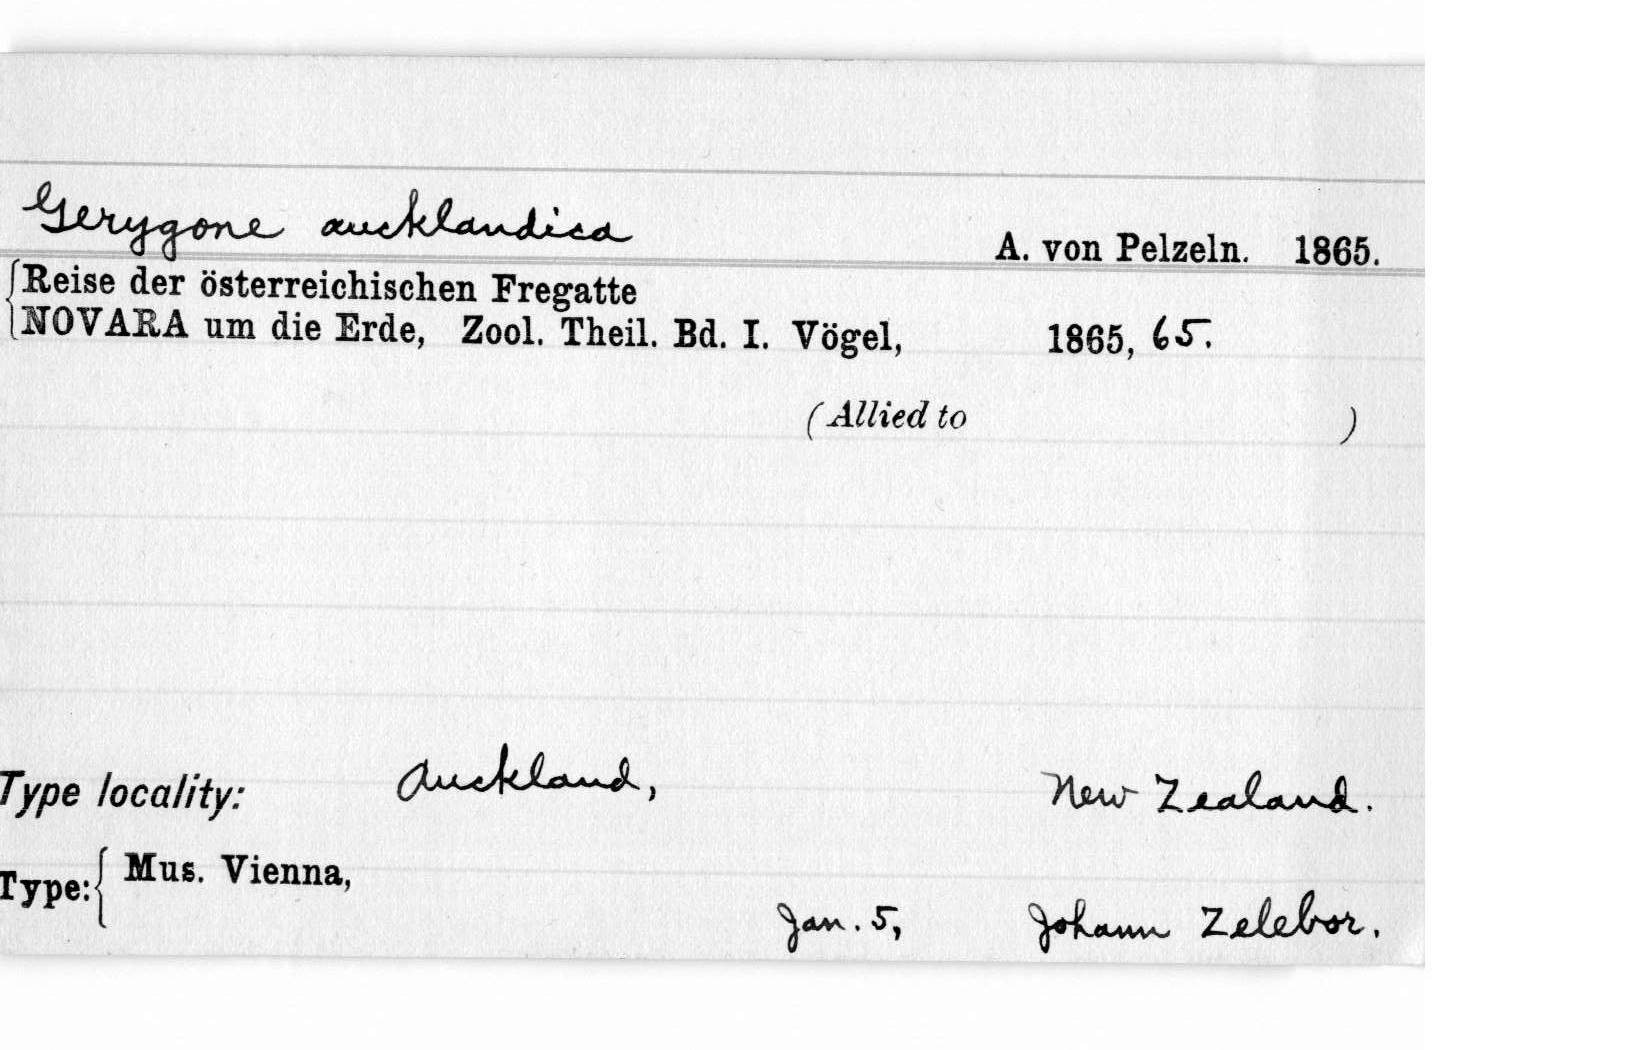 Gerygone aucklandica
A. von Pelzeln. 1865.
Reise der österreichischen Fregatte
NOVARA um die Erde, Zool. Theil. Bd. I. Vögel, 1865, 65.
(Allied to )
Type locality: Auckland, New Zealand.
Type: Mus. Vienna,
Jan. 5, Johann Zelebor.